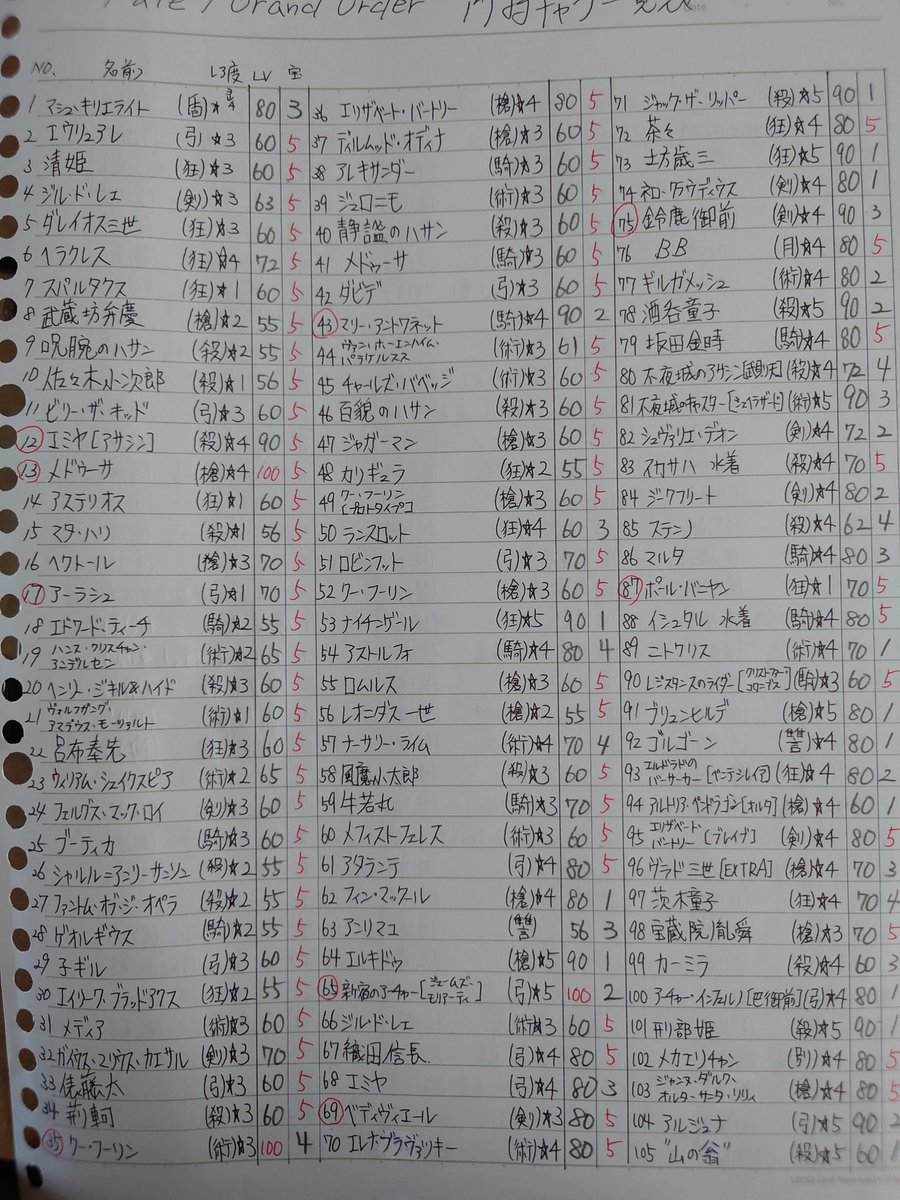 Fate / Grand Order 所持キャラ一覧表
NO. 名前 レア度 LV 宝
1 マシュ・キリエライト (盾)☆ 80 3
2 エウリュアレ (弓)☆3 60 5
3 清姫 (狂)☆3 60 5
4 ジル・ド・レェ (剣)☆3 63 5
5 ダレイオス三世 (狂)☆3 60 5
6 ヘラクレス (狂)☆4 72 5
7 スパルタクス (狂)☆1 60 5
8 武蔵坊弁慶 (槍)☆2 55 5
9 呪腕のハサン (殺)☆2 55 5
10 佐々木小次郎 (殺)☆1 56 5
11 ビリー・ザ・キッド (弓)☆3 60 5
12 エミヤ[アサシン] (殺)☆4 90 5
13 メドゥーサ (槍)☆4 100 5
14 アステリオス (狂)☆1 60 5
15 マタ・ハリ (殺)☆1 56 5
16 ヘクトール (槍)☆3 70 5
17 アーラシュ (弓)☆1 70 5
18 エドワード・ティーチ (騎)☆2 55 5
19 ハンス・クリスチャン・アンデルセン (術)☆2 65 5
20 ヘンリー・ジキル&ハイド (殺)☆3 60 5
21 ヴォルフガング・アマデウス・モーツァルト (術)☆1 60 5
22 呂布奉先 (狂)☆3 60 5
23 ウィリアム・シェイクスピア (術)☆2 65 5
24 フェルグス・マック・ロイ (剣)☆3 60 5
25 ブーディカ (騎)☆3 60 5
26 シャルル=アンリ・サンソン (殺)☆2 55 5
27 ファントム・オブ・ジ・オペラ (殺)☆2 55 5
28 ゲオルギウス (騎)☆2 55 5
29 子ギル (弓)☆3 60 5
30 エイリーク・ブラッドアクス (狂)☆2 55 5
31 メディア (術)☆3 60 5
32 ガイウス・ユリウス・カエサル (剣)☆3 70 5
33 俵藤太 (弓)☆3 60 5
34 荊軻 (殺)☆3 60 5
35 クー・フーリン (術)☆3 100 4
36 エリザベート・バートリー (槍)☆4 80 5
37 ディルムッド・オディナ (槍)☆3 60 5
38 アレキサンダー (騎)☆3 60 5
39 ジェロニモ (術)☆3 60 5
40 静謐のハサン (殺)☆3 60 5
41 メドゥーサ (騎)☆3 60 5
42 ダビデ (弓)☆3 60 5
43 マリー・アントワネット (騎)☆4 90 2
44 ヴァン・ホーエンハイム・パラケルスス (術)☆3 61 5
45 チャールズ・バベッジ (術)☆3 60 5
46 百貌のハサン (殺)☆3 60 5
47 ジャガーマン (槍)☆3 60 5
48 カリギュラ (狂)☆2 55 5
49 クー・フーリン[プロトタイプ] (槍)☆3 60 5
50 ランスロット (狂)☆4 60 3
51 ロビンフット (弓)☆3 70 5
52 クー・フーリン (槍)☆3 60 5
53 ナイチンゲール (狂)☆5 90 1
54 アストルフォ (騎)☆4 80 4
55 ロムルス (槍)☆3 60 5
56 レオニダス一世 (槍)☆2 55 5
57 ナーサリー・ライム (術)☆4 70 4
58 風魔小太郎 (殺)☆3 60 5
59 牛若丸 (騎)☆3 70 5
60 メフィストフェレス (術)☆3 60 5
61 アタランテ (弓)☆4 80 5
62 フィン・マックール (槍)☆4 80 1
63 アンリマユ (讐) 56 3
64 エルキドゥ (槍)☆5 90 1
65 新宿のアーチャー[ジェームズ・モリアーティ] (弓)☆5 100 2
66 ジル・ド・レェ (術)☆3 60 5
67 織田信長 (弓)☆4 80 5
68 エミヤ (弓)☆4 80 3
69 ベディヴィエール (剣)☆3 80 5
70 エレナ・ブラヴァツキー (術)☆4 80 5
71 ジャック・ザ・リッパー (殺)☆5 90 1
72 茶々 (狂)☆4 80 5
73 土方歳三 (狂)☆5 90 1
74 ネロ・クラウディウス (剣)☆4 80 1
75 鈴鹿御前 (剣)☆4 90 3
76 BB (月)☆4 80 5
77 ギルガメッシュ (術)☆4 80 2
78 酒呑童子 (殺)☆5 90 2
79 坂田金時 (騎)☆4 80 5
80 不夜城のアサシン[武則天] (殺)☆4 72 4
81 不夜城のキャスター[シェヘラザード] (術)☆5 90 3
82 シュヴァリエ・デオン (剣)☆4 72 2
83 スカサハ 水着 (殺)☆4 70 5
84 ジークフリート (剣)☆4 80 2
85 ステンノ (殺)☆4 62 4
86 マルタ (騎)☆4 80 3
87 ポール・バニヤン (狂)☆1 70 5
88 イシュタル 水着 (騎)☆4 80 5
89 ニトクリス (術)☆4 70 1
90 レジスタンスのライダー[クリストファー・コロンブス] (騎)☆3 60 5
91 ブリュンヒルデ (槍)☆5 80 1
92 ゴルゴーン (讐)☆4 80 1
93 エルドラドのバーサーカー[ペンテシレイア] (狂)☆4 80 2
94 アルトリア・ペンドラゴン[オルタ] (槍)☆4 60 1
95 エリザベート・バートリー[ブレイブ] (剣)☆4 80 5
96 ヴラド三世[EXTRA] (槍)☆4 70 3
97 茨木童子 (狂)☆4 70 4
98 宝蔵院胤舜 (槍)☆3 70 5
99 カーミラ (殺)☆4 60 3
100 アーチャー・インフェルノ[巴御前] (弓)☆4 80 1
101 刑部姫 (殺)☆5 90 1
102 メカエリチャン (別)☆4 80 5
103 ジャンヌ・ダルク・オルタ・サンタ・リリィ (槍)☆4 80 5
104 アルジュナ (弓)☆5 90 2
105 "山の翁" (殺)☆5 60 1